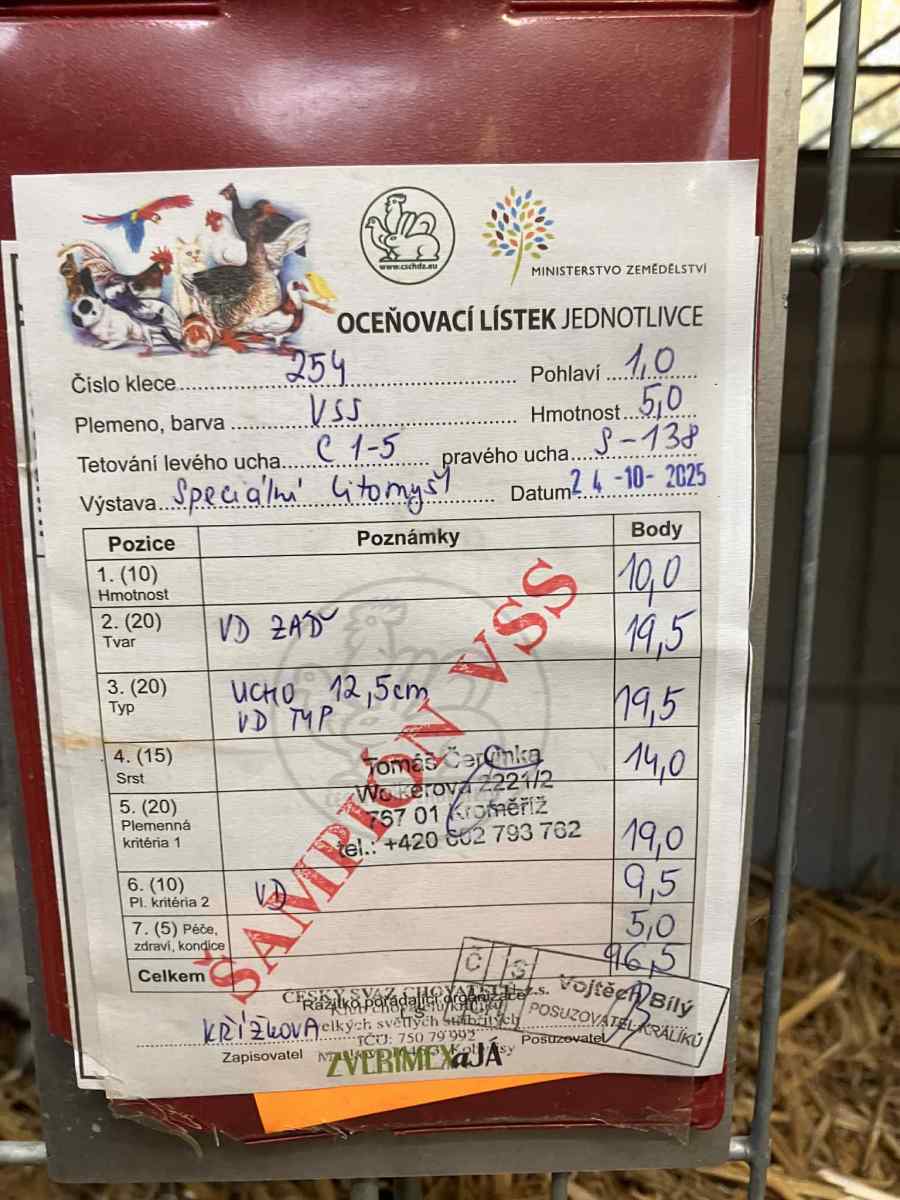 www.cschdz.eu
MINISTERSTVO ZEMĚDĚLSTVÍ
OCEŇOVACÍ LÍSTEK JEDNOTLIVCE
Číslo klece 254 Pohlaví 1,0
Plemeno, barva VSS Hmotnost 5,0
Tetování levého ucha C 1-5 pravého ucha S-138
Výstava Speciální Litomyšl Datum 24 -10- 2025
Pozice Poznámky Body
1. (10) Hmotnost 10,0
2. (20) Tvar VD ZÁĎ 19,5
3. (20) Typ UCHO 12,5cm 19,5
VD TYP
4. (15) Srst 14,0
5. (20) Plemenná kritéria 1 19,0
6. (10) Pl. kritéria 2 VD 9,5
7. (5) Péče, zdraví, kondice 5,0
Celkem 96,5
ŠAMPION VSS
Tomáš
Wolkerova 2221/2
767 01 Kroměříž
tel.: +420 602 793 762
ČESKÝ SVAZ CHOVATELŮ z.s.
Razítko pořádající organizace
velkých světlých stříbřitých
IČO: 750 79 992
Č S
Vojtěch Bílý
POSUZOVATEL KRÁLÍKŮ
KŘÍŽKOVA
Zapisovatel Posuzovatel
ZVERIMEXaJÁ